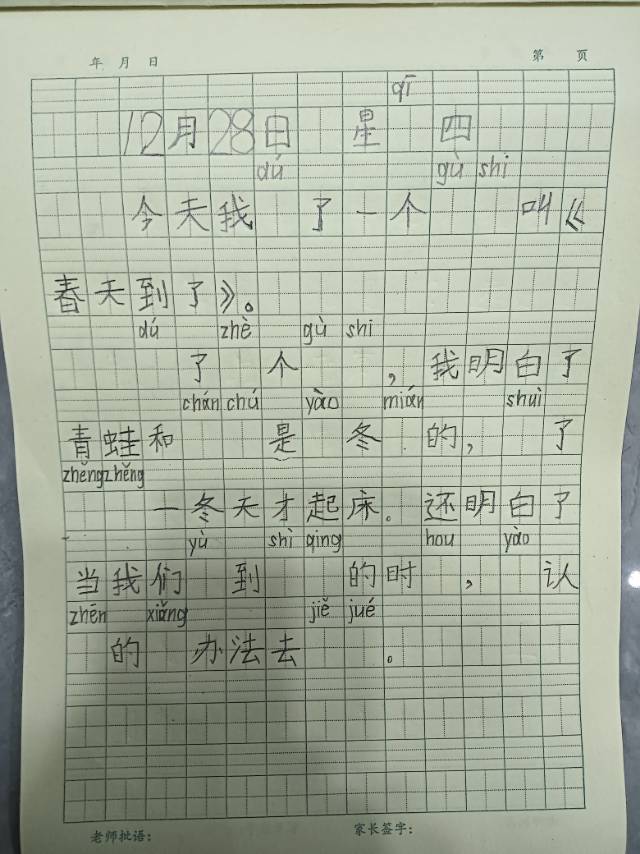 年 月 日 第 页
qī
12月28日 星 四
dú gù shi
今天我 了一个 叫《
春天到了》。
dú zhè gù shi
了 个 ，我明白了
chán chú yào mián shuì
青蛙和 是 冬 的， 了
zhěng zhěng
一冬天才起床。还明白了
yù shì qing hou yào
当我们 到 的时 ， 认
zhēn xiǎng jiě jué
的 办法去 。
老师批语： 家长签字：